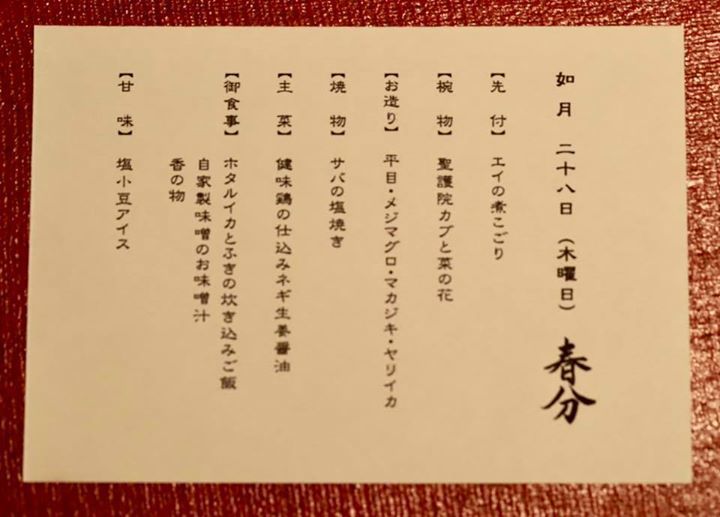 如月 二十八日 （木曜日） 春分
【先 付】 エイの煮こごり
【椀 物】 聖護院カブと菜の花
【お造り】 平目・メジマグロ・マカジキ・ヤリイカ
【焼 物】 サバの塩焼き
【主 菜】 健味鶏の仕込みネギ生姜醤油
【御食事】 ホタルイカとふきの炊き込みご飯
自家製味噌のお味噌汁
香の物
【甘 味】 塩小豆アイス